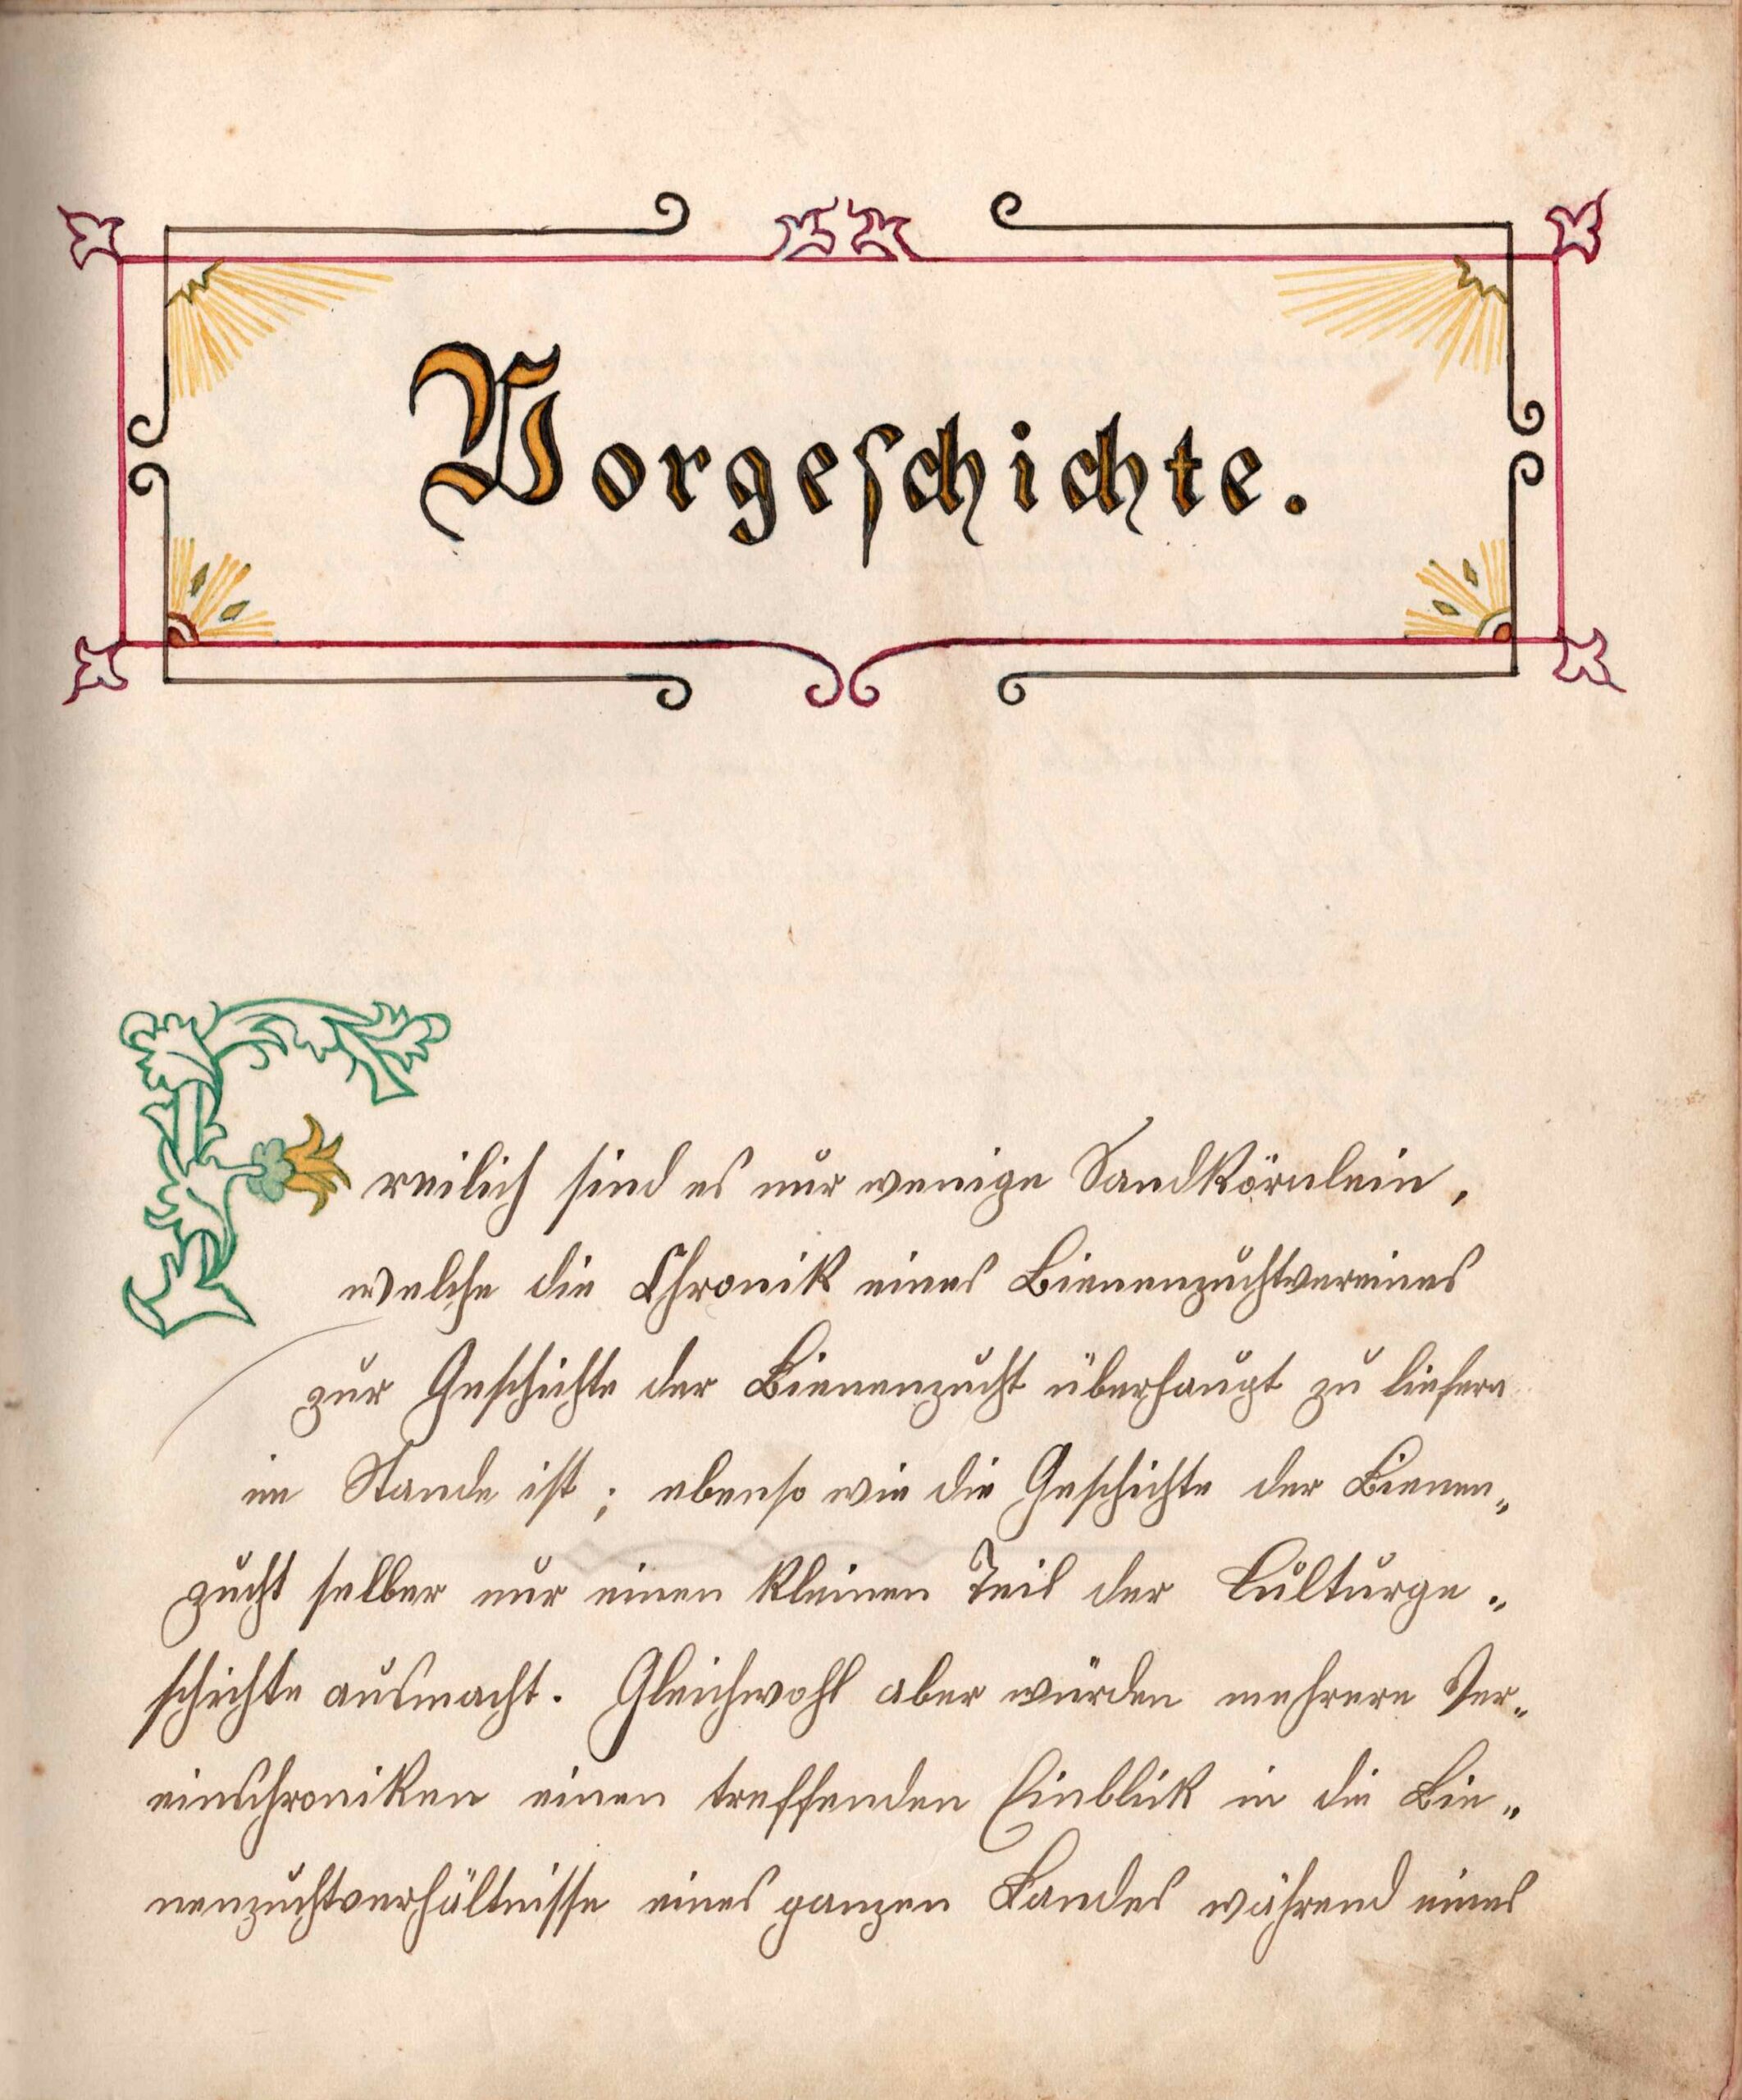 Vorgeschichte.
Freilich sind es nur wenige Sandkörnlein,
welche die Chronik eines Bienenzuchtvereines
zur Geschichte der Bienenzucht überhaupt zu liefern
im Stande ist; ebenso wie die Geschichte der Bienen„
zucht selber nur einen kleinen Teil der Culturge„
schichte ausmacht. Gleichwohl aber würden mehrere Ver„
einschroniken einen treffenden Einblick in die Bie„
nenzuchtverhältnisse eines ganzen Landes während eines